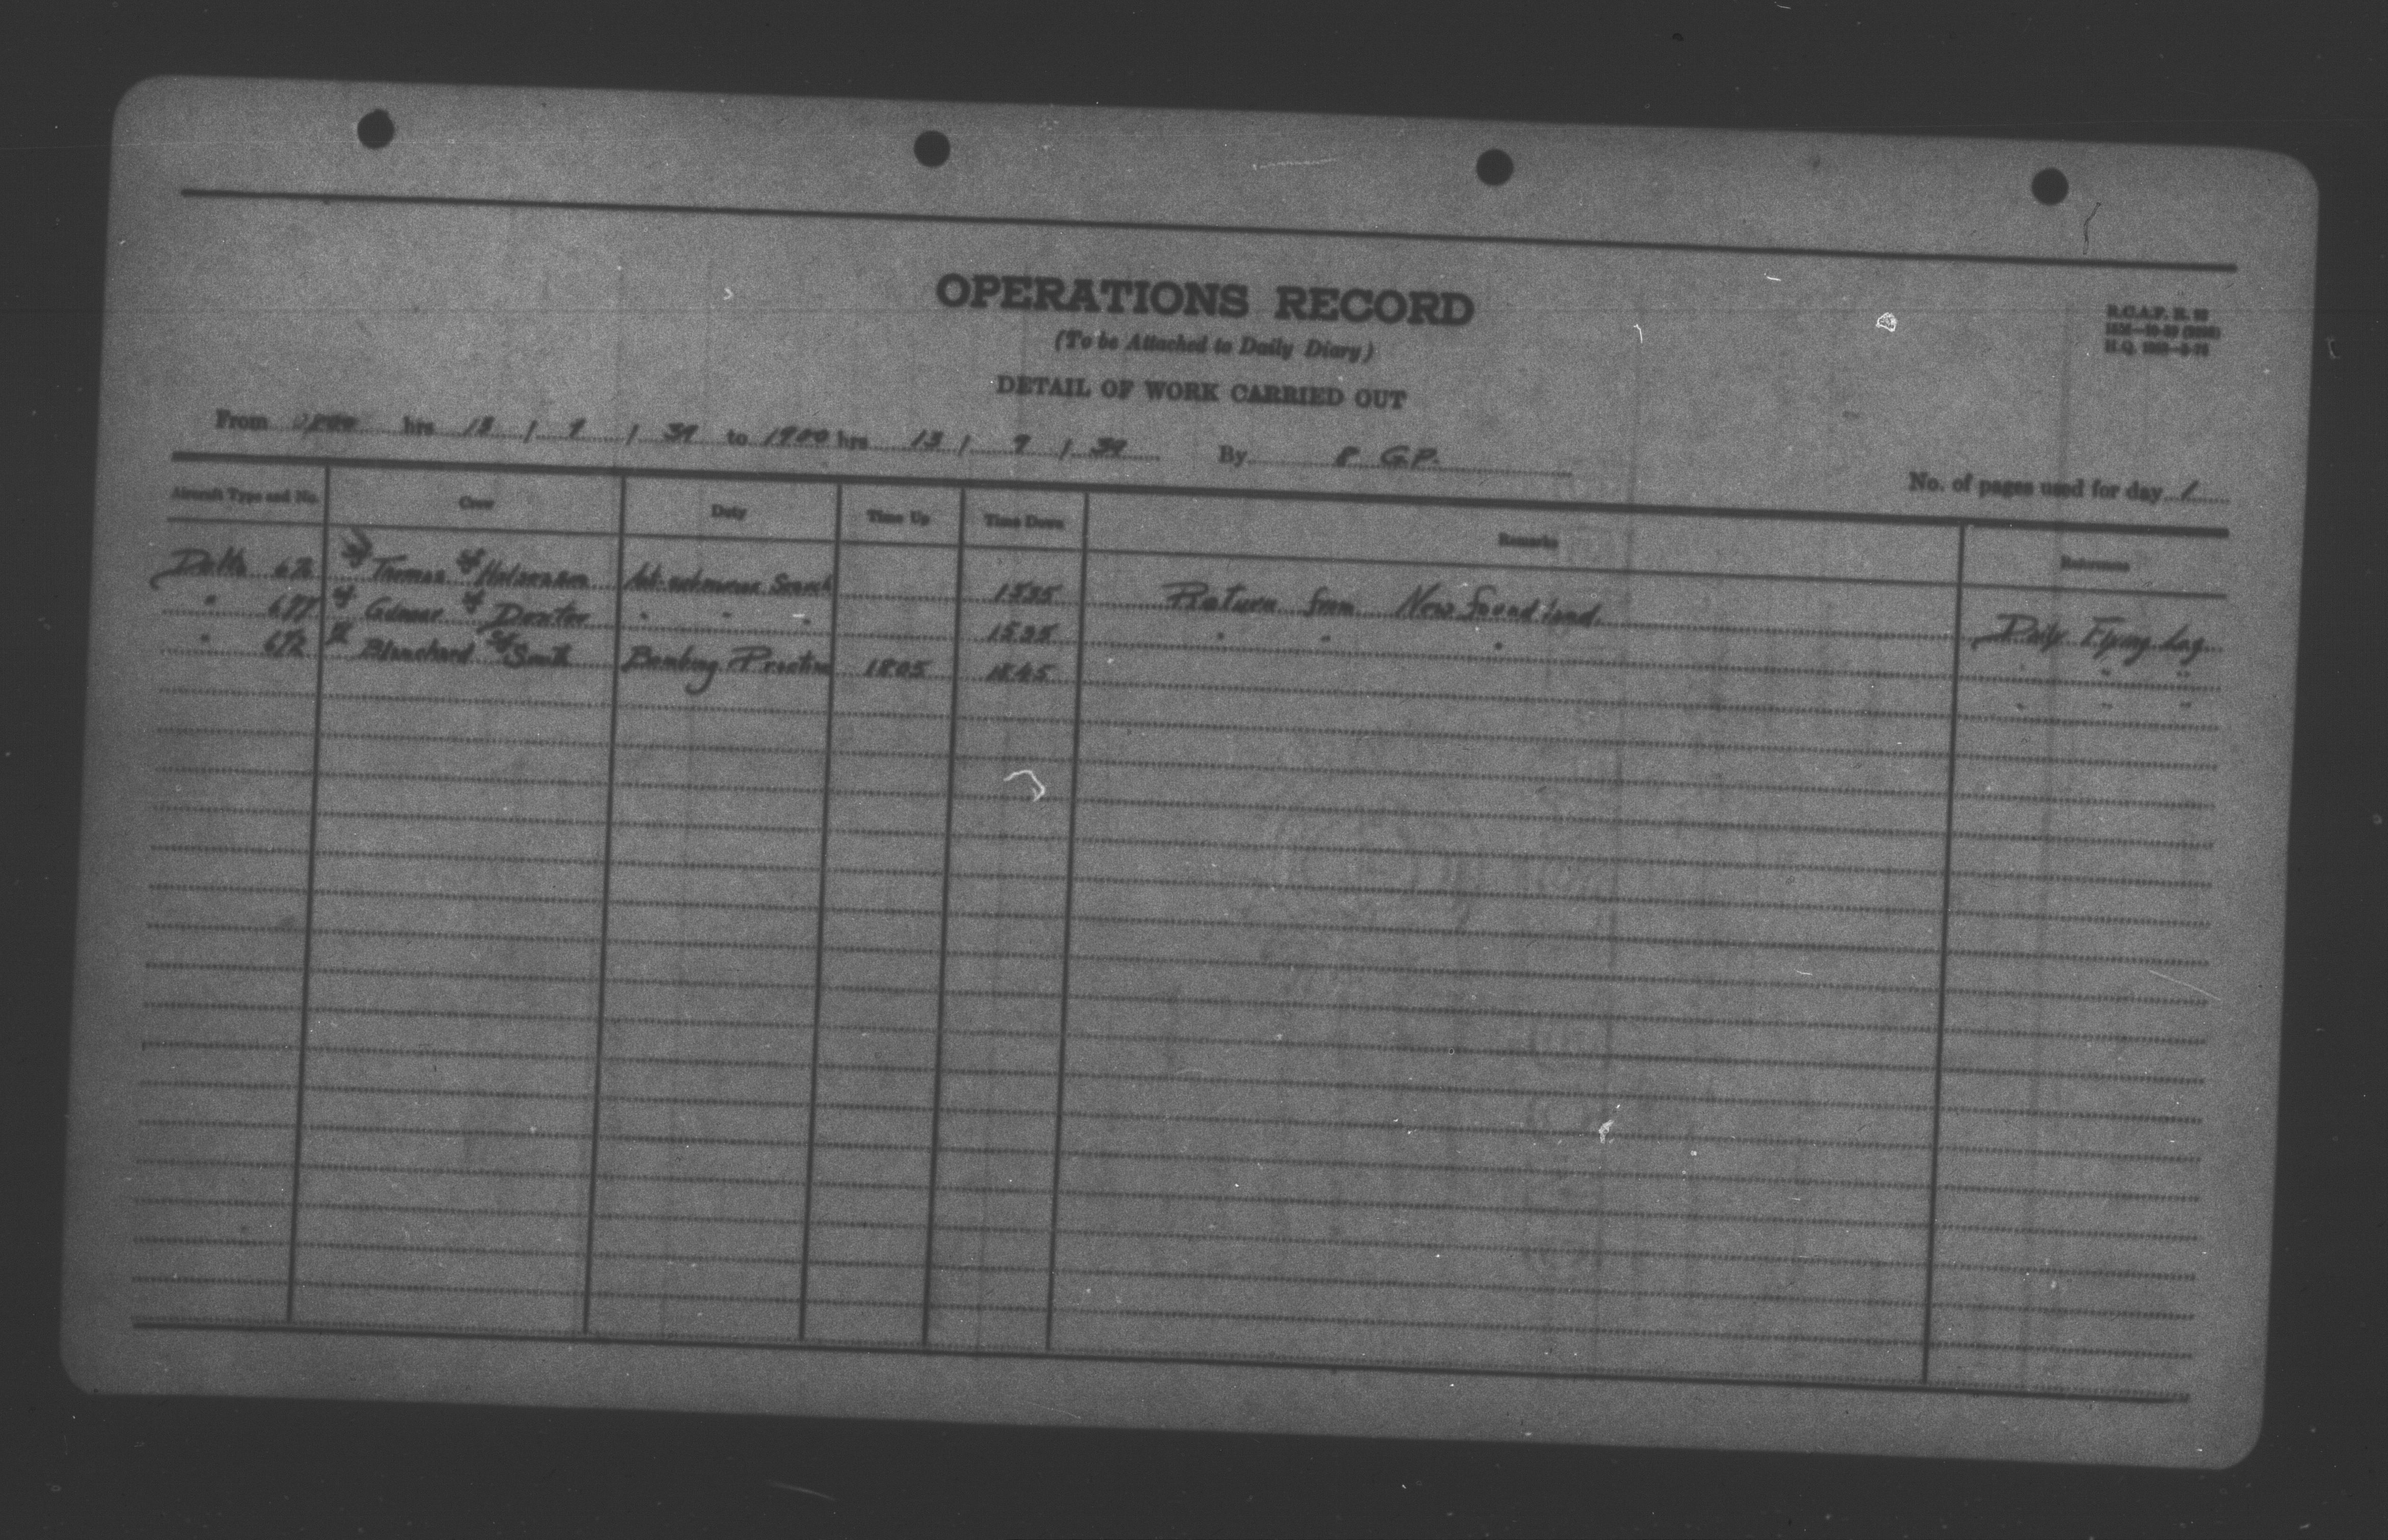 OPERATIONS RECORD
R.C.A.F. R.
(To be Attached to Daily Diary)
H.Q.
DETAIL OF WORK CARRIED OUT
From hrs 13 / 9 / 39 to 1900 hrs 13 / 9 / 39 By 8 G.P.
No. of pages used for day 1
Aircraft Type and No. Crew Duty Time Up Time Down Remarks Reference
Delta 672 Thomas Anti-submarine Search 1535 Return from Newfoundland. Daily Flying Log
" 677 Dexter " " 1535 " " " " " "
" 672 Blanchard Smith Bombing Practice 1805 1845 " " "